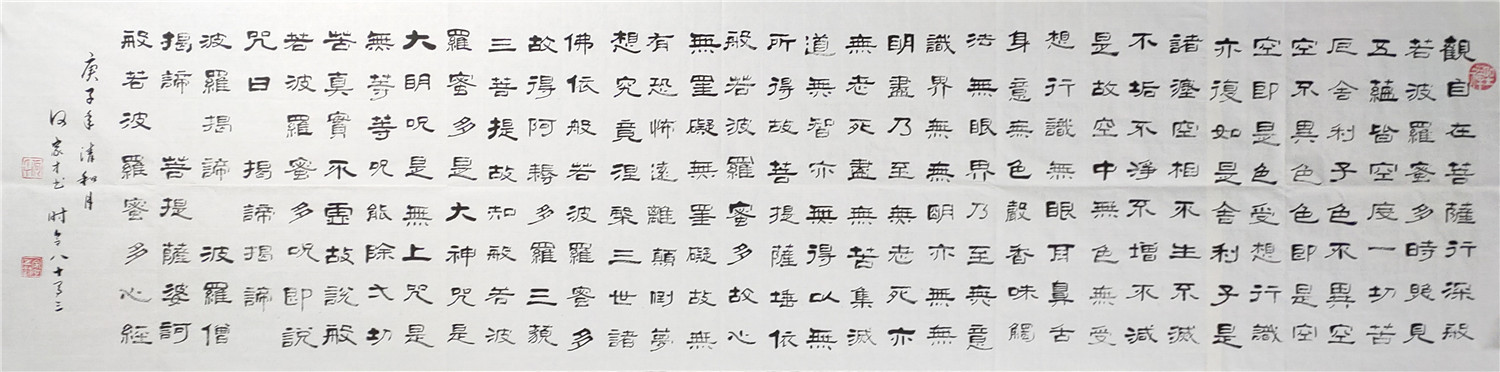 觀自在菩薩行深般
若波羅蜜多時照見
五蘊皆空度一切苦
厄舍利子色不異空
空不異色色即是空
空即是色受想行識
亦復如是舍利子是
諸灋空相不生不滅
不垢不淨不增不減
是故空中無色無受
想行識無眼耳鼻舌
身意無色聲香味觸
法無眼界乃至無意
識界無無明亦無無
明盡乃至無老死亦
無老死盡無苦集滅
道無智亦無得以無
所得故菩提薩埵依
般若波羅蜜多故心
無罣礙無罣礙故無
有恐怖遠離顛倒夢
想究竟涅槃三世諸
佛依般若波羅蜜多
故得阿耨多羅三藐
三菩提故知般若波
羅蜜多是大神咒是
大明咒是無上咒是
無等等咒能除弌切
苦真實不虛故說般
若波羅蜜多呪即說
咒曰 揭諦揭諦
波羅揭諦 波羅僧
揭諦 菩提薩婆訶
般若波羅蜜多心經
庚子年清和月
家才书时年八十有三